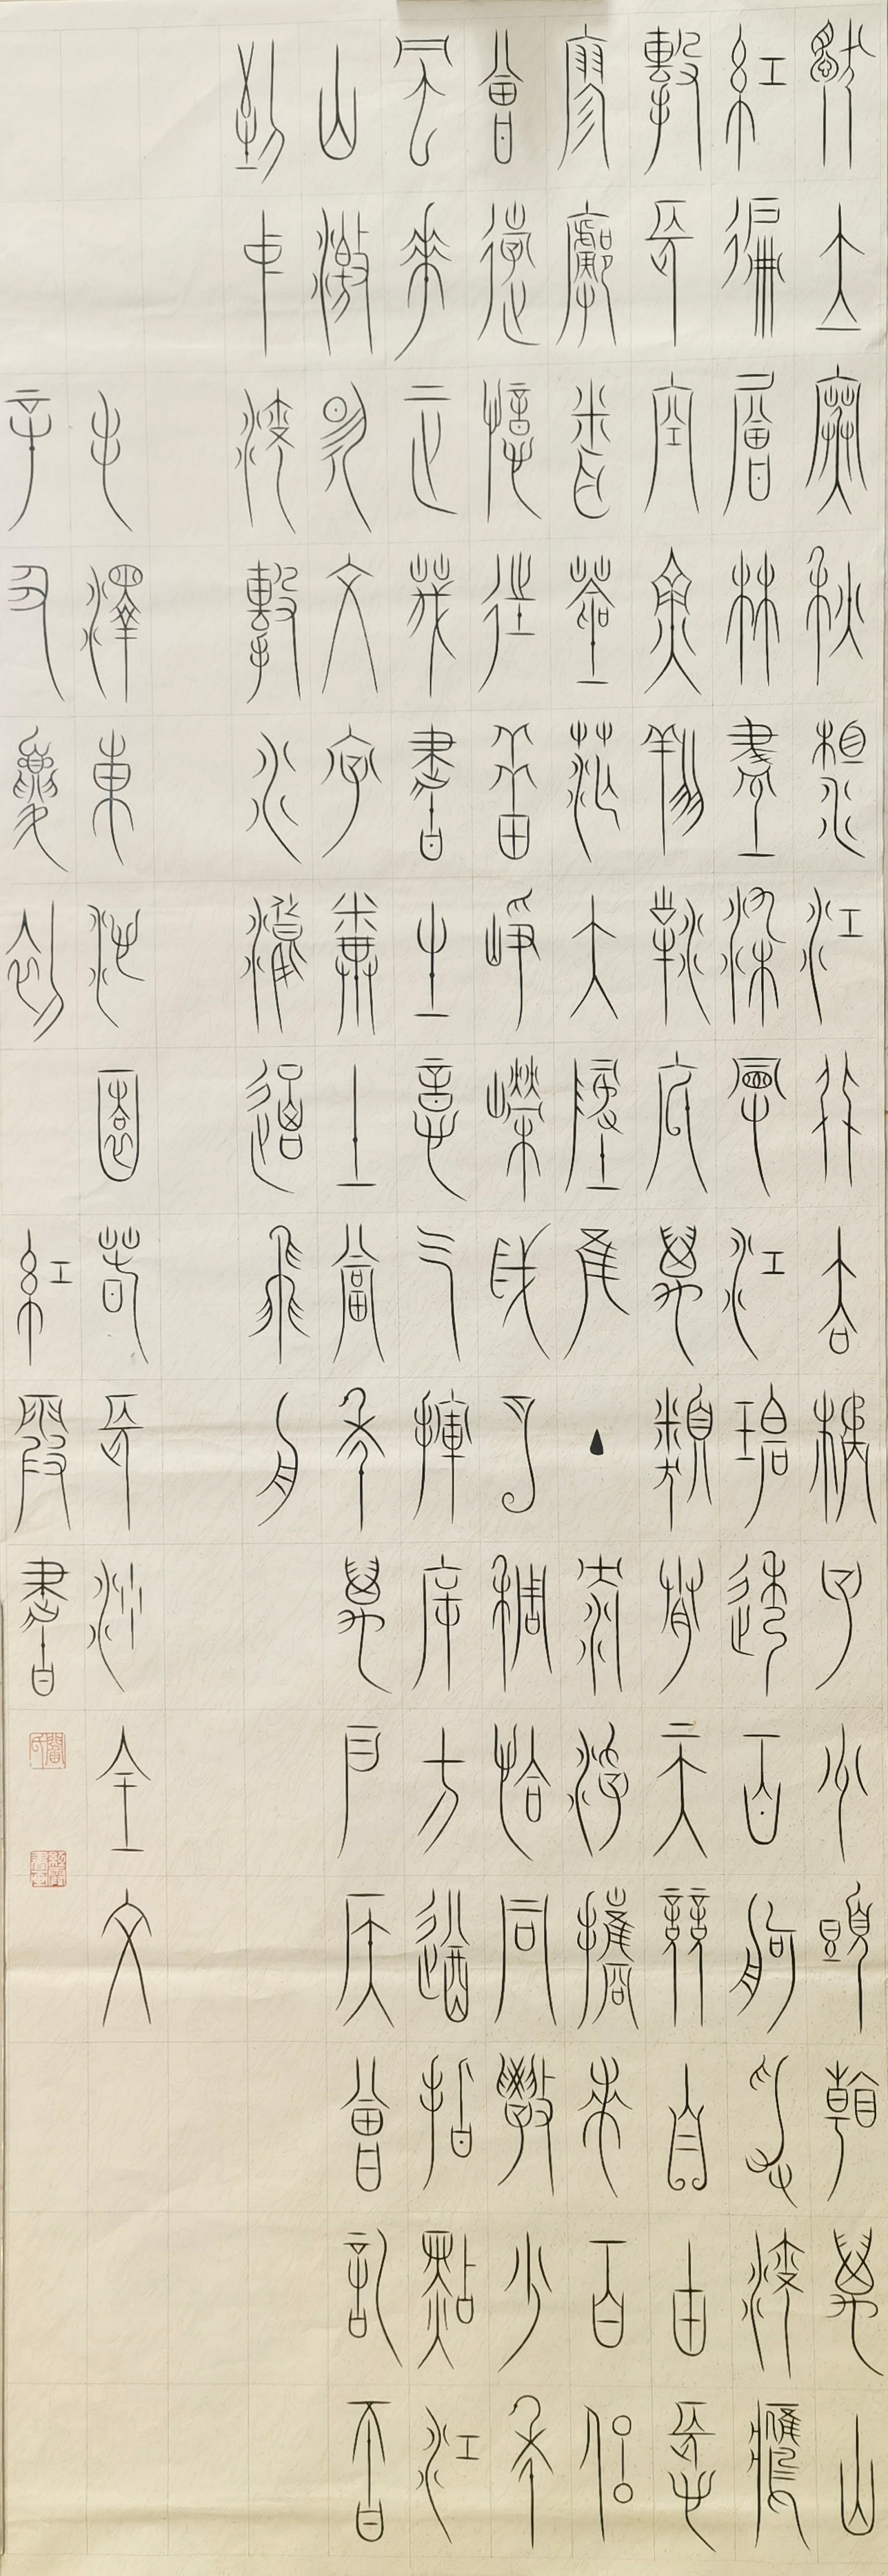 獨立寒秋湘江北去橘子洲頭看萬山
紅遍層林盡染漫江碧透百舸爭流鷹
擊長空魚翔淺底萬類霜天競自由悵
寥廓問蒼茫大地誰主沉浮攜來百侶
曾遊憶往昔崢嶸歲月稠恰同學少年
風華正茂書生意氣揮斥方遒指點江
山激揚文字糞土當年萬戶侯曾記否
到中流擊水浪遏飛舟
毛澤東沁園春長沙全文
辛丑夏初紅霞書